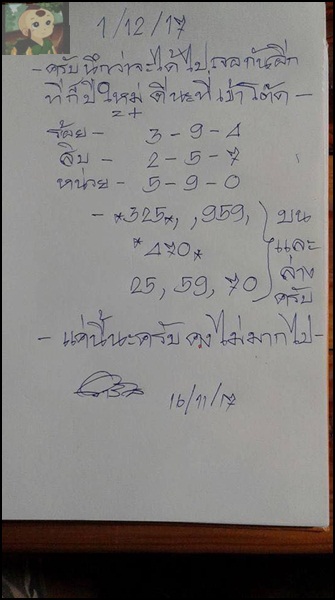 1/12/17
- ครับนึกว่าจะได้ไปเจอกันอีก
ที่ก็ปีใหม่ ดีนะที่เข้าโต๊ด -
2+
ร้อย - 3-9-4
สิบ - 2-5-7
หน่วย - 5-9-0
- *325*, ,959, บน
*470* และ
25, 59, 70 ล่าง
ครับ
- แค่นี้นะครับ คงไม่มากไป -
16/11/17